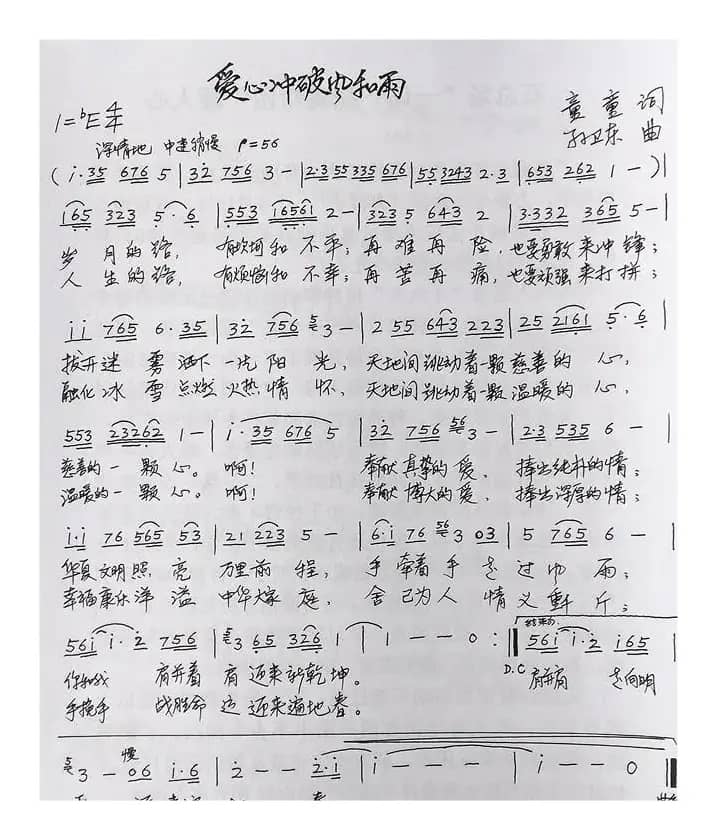 爱心冲破风和雨
童童 词
孙卫东 曲
1=♭E 4/4
深情地 中速稍慢 ♩=56
(i·35 676 5 | 32 756 3 - | 2·3 55 335 676 | 55 3243 2·3 | 653 262 1 - )|
165 323 5·6 | 553 16561 2 - | 323 5 643 2 | 3·332 365 5 - |
岁月的路，有坎坷和不平；再难再险，也要勇敢来冲锋；
人生的路，有烦恼和不幸；再苦再痛，也要顽强来打拼；
ii 765 6·35 | 32 756 5 3 - | 2 55 643 223 | 25 2161 5·6 |
拔开迷雾洒下一片阳光，天地间跳动着一颗慈善的心，
融化冰雪点燃火热情怀，天地间跳动着一颗温暖的心，
553 23262 1 - | i·35 676 5 | 32 756 56 3 - | 2·3 535 6 - |
慈善的一颗心。啊！奉献真挚的爱、捧出纯朴的情；
温暖的一颗心。啊！奉献博大的爱、捧出深厚的情；
i·i 76 565 53 | 21 223 5 - | 6·i 76 56 3 03 | 5 765 6 - |
华夏文明照亮万里前程，手牵着手走过风雨；
幸福康乐洋溢中华大家庭，舍己为人情义重千斤；
56i i·2 756 | 5 3 65 326 1 | 1 - - 0 :‖ 结束句 56i i·2 i65 |
你和我 肩并着肩迎来新乾坤。 D.C 肩并肩 走向明
手挽手 战胜命运迎来遍地春。
5 3 - 慢 06 i·6 | 2 - - 2·i | i - - - | i - - 0 ‖